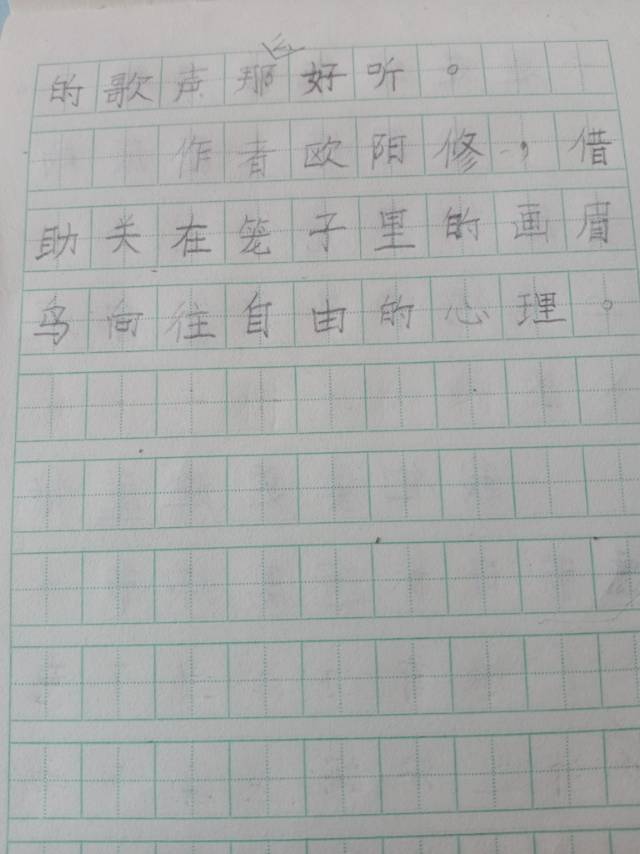 的歌声那么好听。
作者欧阳修，借
助关在笼子里的画眉
鸟向往自由的心理。